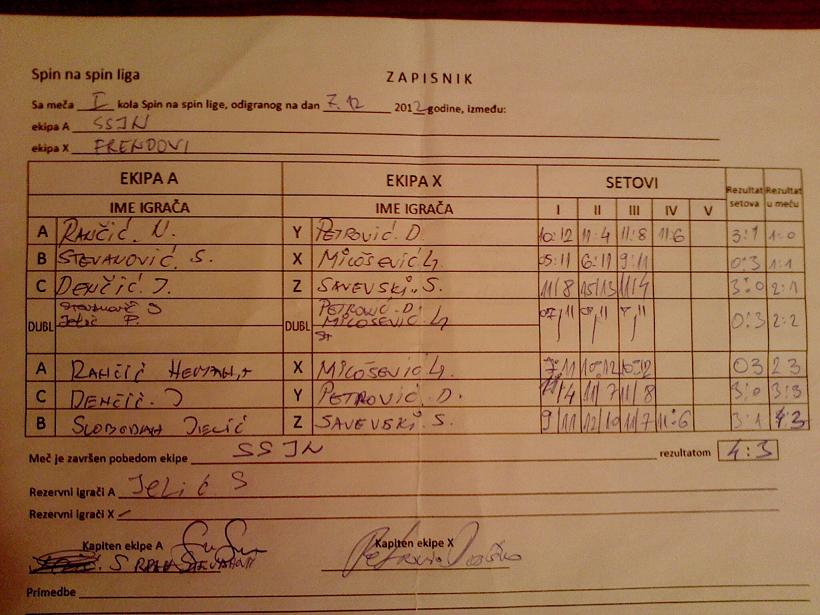 Spin na spin liga
ZAPISNIK
Sa meča I kola Spin na spin lige, odigranog na dan 7.12 2012 godine, između:
ekipa A SSJN
ekipa X FRENDOVI
EKIPA A EKIPA X SETOVI Rezultat setova Rezultat u meču
IME IGRAČA IME IGRAČA I II III IV V
A RANČIĆ N. Y PETROVIĆ D. 10:12 11:4 11:8 11:6 3:1 1:0
B STEVANOVIĆ S. X MILOŠEVIĆ 05:11 6:11 9:11 0:3 1:1
C DENČIĆ J. Z SAVEVSKI S. 11/8 15/13 11/4 3:0 2:1
DUBL Jelić P. DUBL PETROVIĆ D. MILOŠEVIĆ 0:3 2:2
A RANČIĆ X MILOŠEVIĆ 7:11 10:12 10:12 03 23
C DENČIĆ J Y PETROVIĆ D. 11/4 11/7 11/8 3:0 3:3
B SLOBODAN JELIĆ Z SAVEVSKI S. 9/11 12/10 11/7 11:6 3:1 4:3
Meč je završen pobedom ekipe SSJN rezultatom 4:3
Rezervni igrači A JELIĆ S
Rezervni igrači X
Kapiten ekipe A Kapiten ekipe X
Primedbe